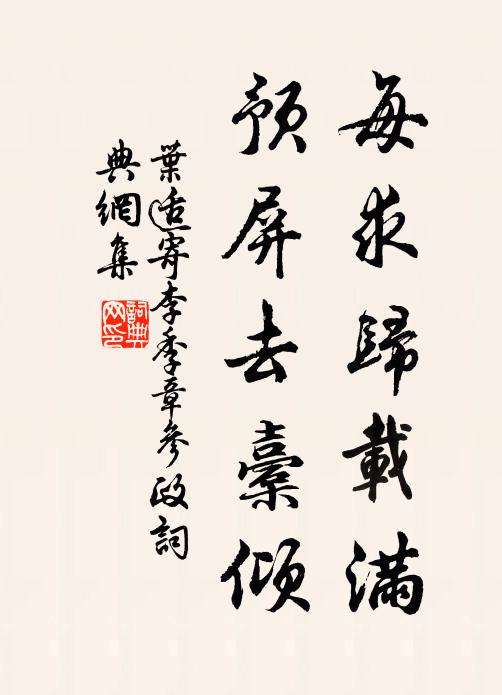 每求歸載滿
預屏去橐傾
葉適寄李季章參政詞
典網集
詞典網印